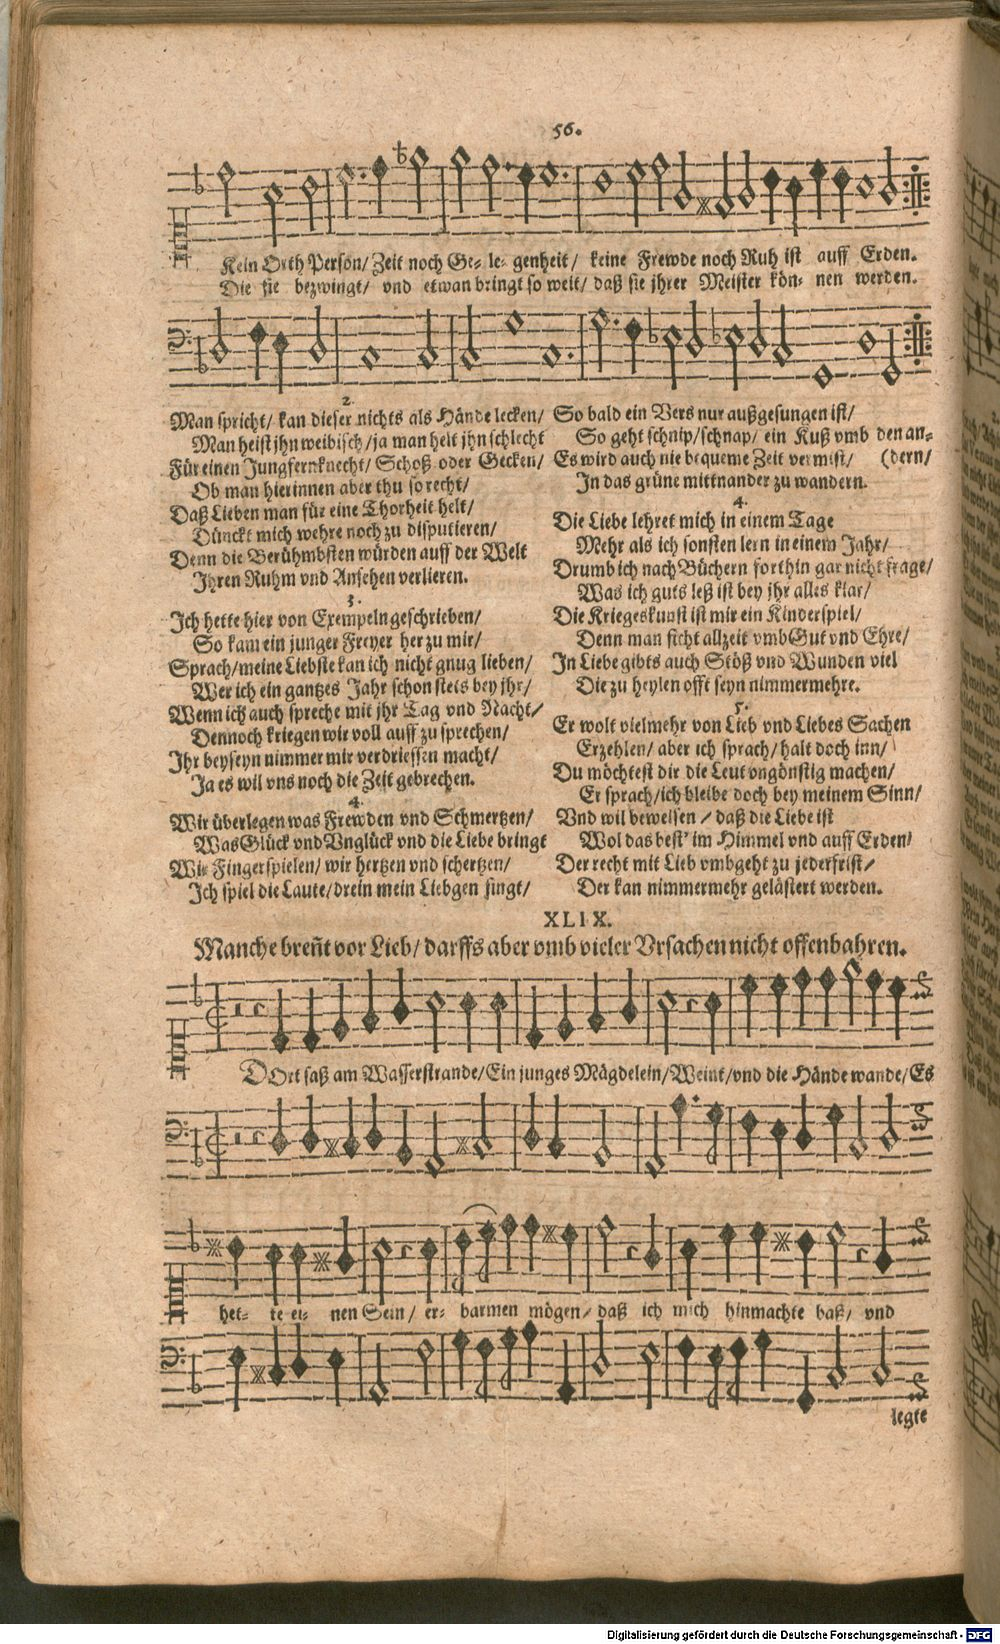 56.
Kein Orth Person/ Zeit noch Ge- le- genheit/ keine Frewde noch Ruh ist auff Erden.
Die sie bezwingt/ vnd etwan bringt so weit/ daß sie jhrer Meister kön- nen werden.
2.
Man spricht/ kan dieser nichts als Hände lecken/
Man heist jhn weibisch/ ja man helt jhn schlecht
Für einen Jungfernknecht/ Schoß oder Gecken/
Ob man hierinnen aber thu so recht/
Daß Lieben man für eine Thorheit helt/
Dünckt mich wehre noch zu disputieren/
Denn die Berühmbsten würden auff der Welt
Ihren Ruhm vnd Ansehen verlieren.
3.
Ich hette hier von Exempeln geschrieben/
So kam ein junger Freyer her zu mir/
Sprach/ meine Liebste kan ich nicht gnug lieben/
Wer ich ein gantzes Jahr schon stets bey jhr/
Wenn ich auch spreche mit jhr Tag vnd Nacht/
Dennoch kriegen wir voll auff zu sprechen/
Ihr beyseyn nimmer mir verdriessen macht/
Ja es wil vns noch die Zeit gebrechen.
4.
Wir überlegen was Frewden vnd Schmertzen/
Was Glück vnd Vnglück vnd die Liebe bringt
Wir Fingerspielen/ wir hertzen vnd schertzen/
Ich spiel die Laute/ drein mein Liebgen singt/
So bald ein Vers nur außgesungen ist/
So geht schnip/ schnap/ ein Kuß vmb den an-
Es wird auch nie bequeme Zeit vermist/ (dern/
In das grüne mittnander zu wandern.
4.
Die Liebe lehret mich in einem Tage
Mehr als ich sonsten lern in einem Jahr/
Drumb ich nach Büchern forthin gar nicht frage/
Was ich guts leß ist bey jhr alles klar/
Die Kriegeskunst ist mir ein Kinderspiel/
Denn man ficht allzeit vmb Gut vnd Ehre/
In Liebe gibts auch Stöß vnd Wunden viel
Die zu heylen offt seyn nimmermehre.
5.
Er wolt vielmehr von Lieb vnd Liebes Sachen
Erzehlen/ aber ich sprach/ halt doch inn/
Du möchtest dir die Leut vngönstig machen/
Er sprach/ ich bleibe doch bey meinem Sinn/
Vnd wil beweisen/ daß die Liebe ist
Wol das best' im Himmel vnd auff Erden/
Der recht mit Lieb vmbgeht zu jederfrist/
Der kan nimmermehr gelästert werden.
XLIX.
Manche breñt vor Lieb/ darffs aber vmb vieler Vrsachen nicht offenbahren.
DOrt saß am Wasserstrande/ Ein junges Mägdelein/ Weint/ vnd die Hände wande/ Es
het- te ei- nen Sein/ er- barmen mögen/ daß ich mich hinmachte baß/ vnd
legte
Digitalisierung gefördert durch die Deutsche Forschungsgemeinschaft - DFG